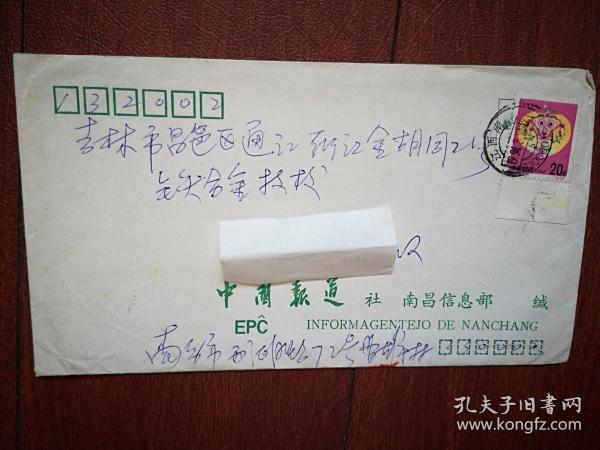 132002
吉林市昌邑区通江街江金胡同2号
铁合金技校
收
江西南昌
20分
中国报道 社 南昌信息部 缄
EPĈ INFORMAGENTEJO DE NANCHANG
南昌市 72号
孔夫子旧书网
www.kongfz.com